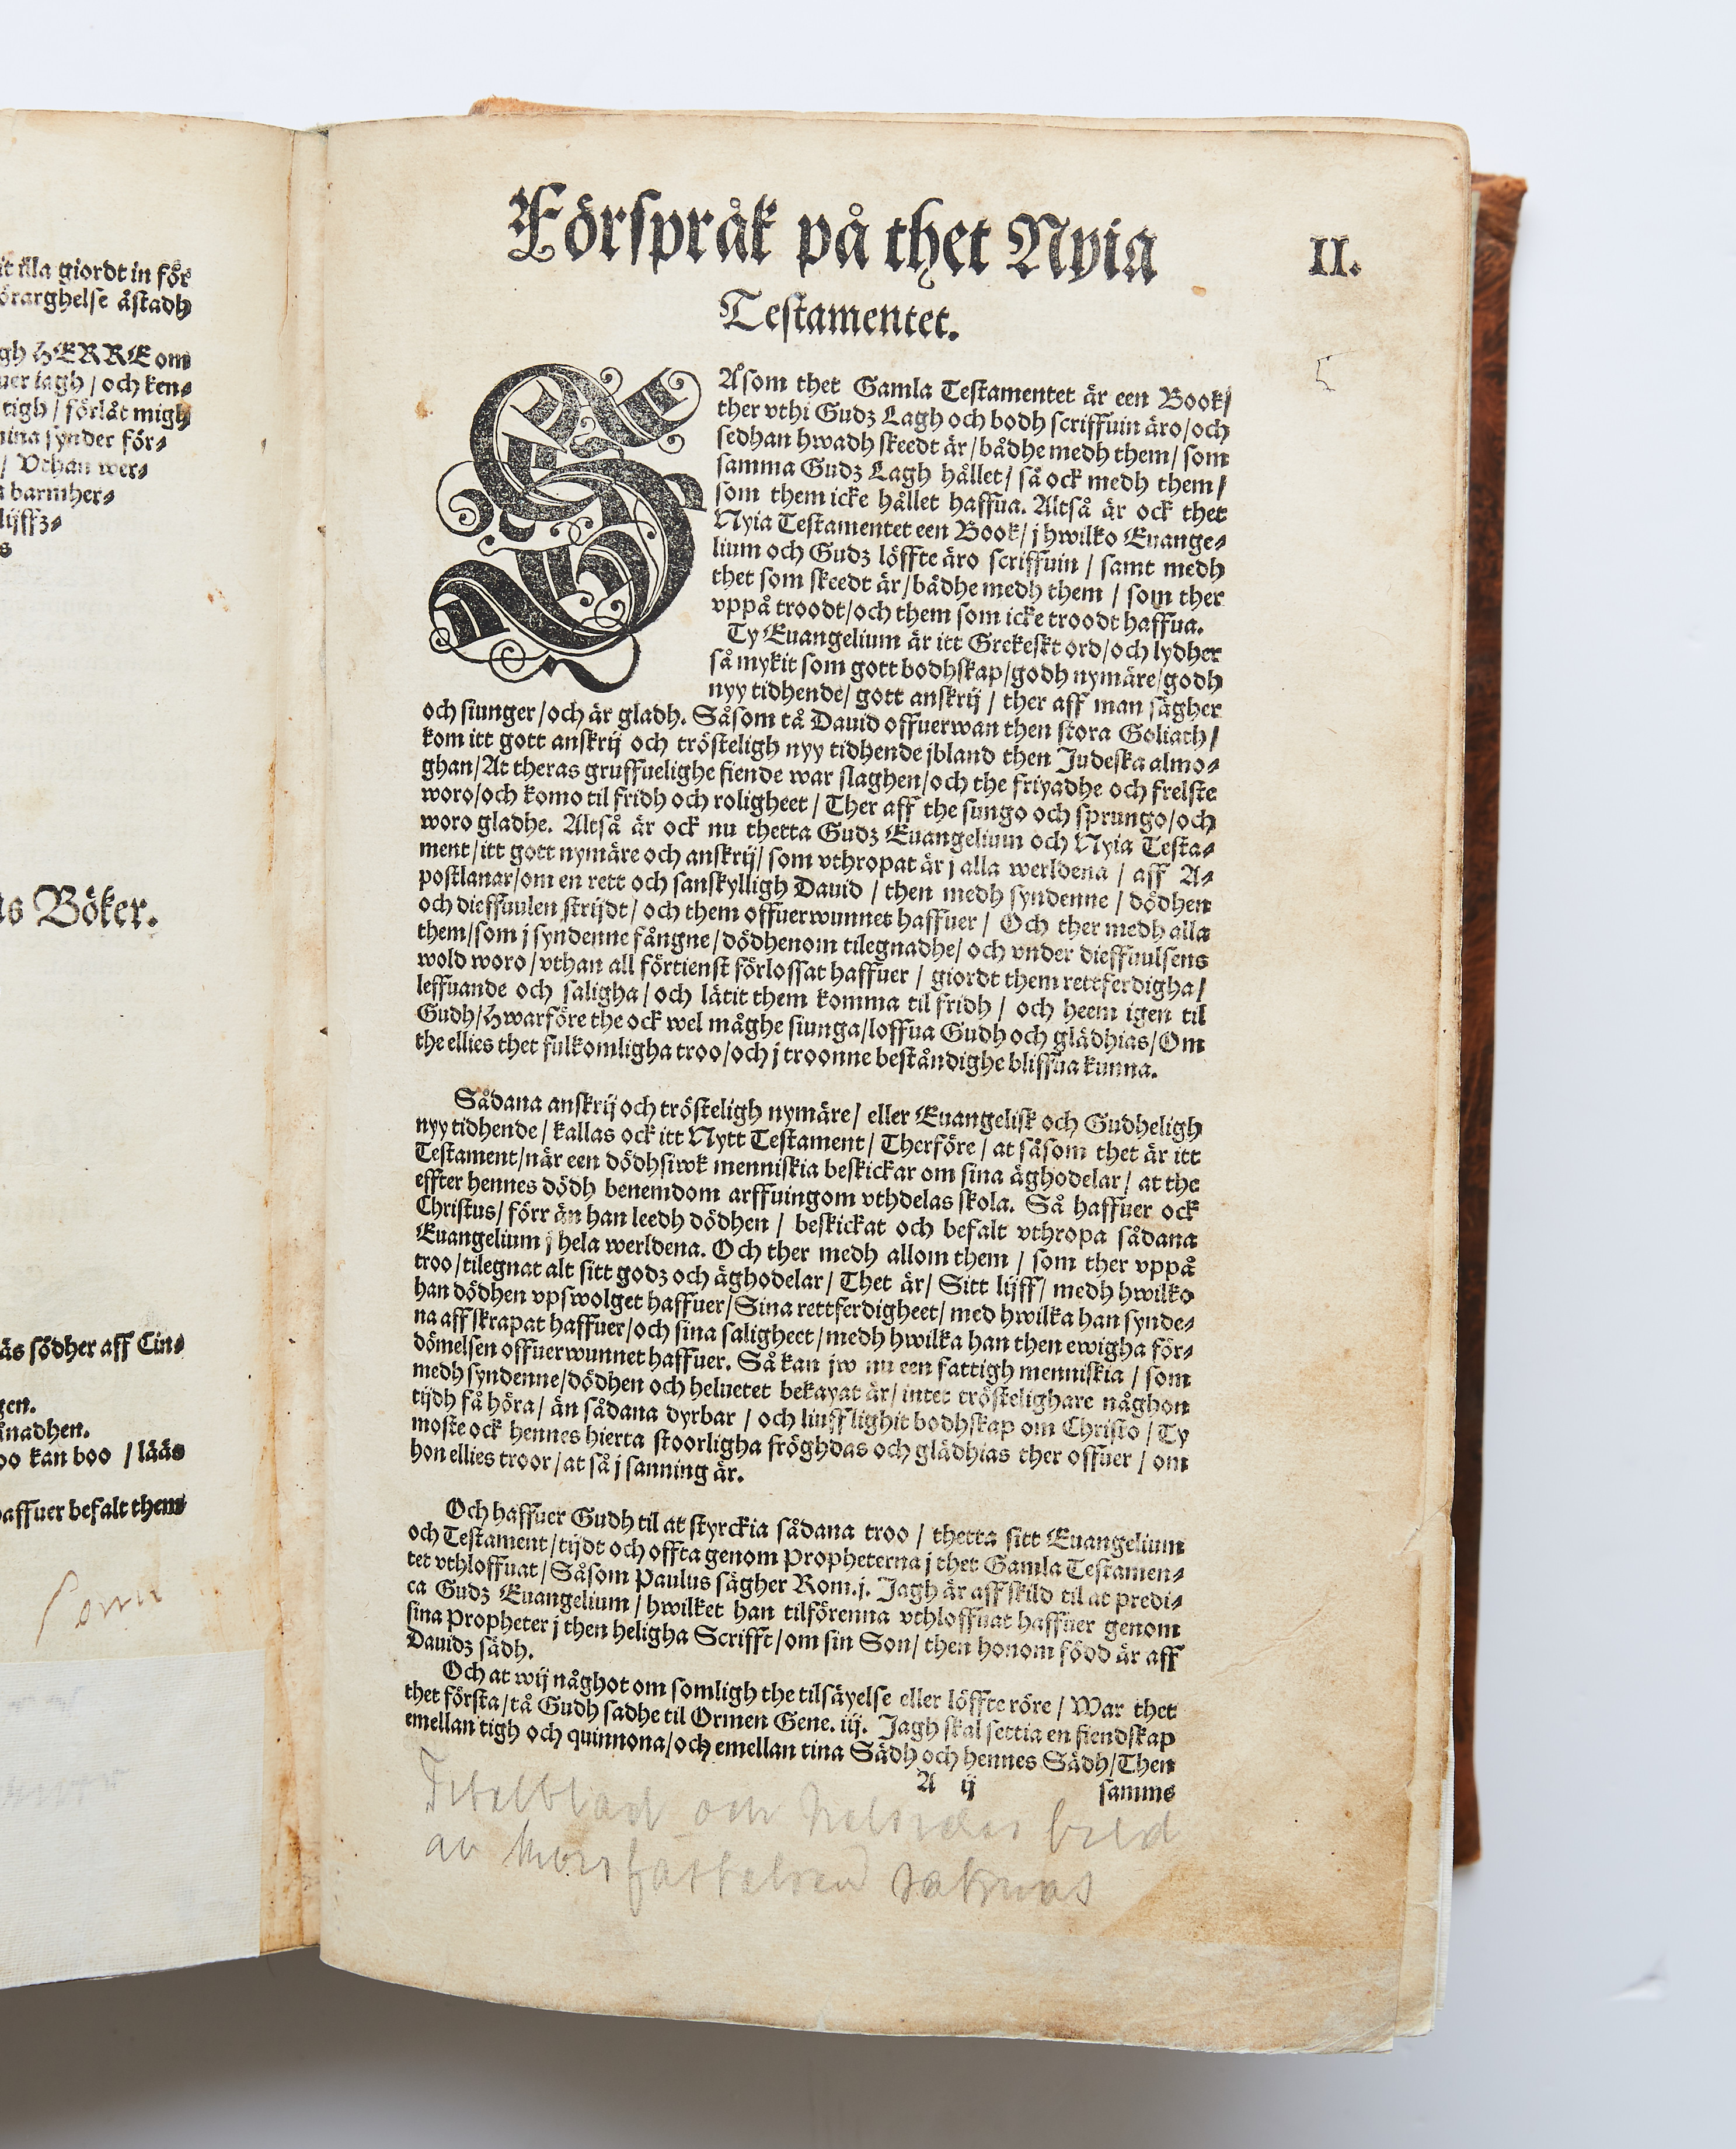 it illa giordt in för
örarghelse åstadh
gh HERRE om
uer iagh / och ken⸗
tigh / förlåt migh
mina synder för⸗
/ Vthan wer⸗
barmher⸗
lijffz⸗
s Böker.
äs södher aff Cin⸗
gen.
ånadhen.
oo kan boo / lääs
haffuer befalt them
Förspråk på thet Nyia
II.
Testamentet.
SÅsom thet Gamla Testamentet är een Book/
ther vthi Gudz Lagh och bodh scriffuin äro/och
sedhan hwadh skeedt är/bådhe medh them/som
samma Gudz Lagh hållet/ så ock medh them/
som them icke hållet haffua. Altså är ock thet
Nyia Testamentet een Book/ j hwilko Euange⸗
lium och Gudz löffte äro scriffuin / samt medh
thet som skeedt är/bådhe medh them / som ther
vppå troodt/och them som icke troodt haffua.
Ty Euangelium är itt Grekeskt ord/och lydher
så mykit som gott bodhskap/godh nymäre/godh
nyy tidhende/ gott anskrij / ther aff man sägher
och siunger/och är gladh. Såsom tå Dauid offuerwan then stora Goliath/
kom itt gott anskrij och trösteligh nyy tidhende jbland then Judeska almo⸗
ghan/At theras gruffuelighe fiende war slaghen/och the friyadhe och frelste
woro/och komo til fridh och roligheet / Ther aff the sungo och sprungo/och
woro gladhe. Altså är ock nu thetta Gudz Euangelium och Nyia Testa⸗
ment/itt gott nymäre och anskrij/ som vthropat är j alla werldena / aff A⸗
postlanar/om en rett och sanskylligh Dauid / then medh syndenne / dödhen
och dieffuulen strijdt/ och them offuerwunnet haffuer / Och ther medh alla
them/som j syndenne fångne/dödhenom tilegnadhe/ och vnder dieffuulsens
wold woro/vthan all förtienst förlossat haffuer / giordt them rettferdigha/
leffuande och saligha/och lätit them komma til fridh / och heem igen til
Gudh/Hwarföre the ock wel måghe siunga/loffua Gudh och glädhias/Om
the ellies thet fulkomligha troo/och j troonne beståndighe bliffua kunna.
Sådana anskrij och trösteligh nymäre/ eller Euangelisk och Gudheligh
nyy tidhende / kallas ock itt Nytt Testament/ Therföre / at såsom thet är itt
Testament/när een dödhsiwk menniskia beskickar om sina äghodelar/ at the
effter hennes dödh benemdom arffuingom vthdelas skola. Så haffuer ock
Christus/ förr än han leedh dödhen / beskickat och befalt vthropa sådana
Euangelium j hela werldena. Och ther medh allom them / som ther vppå
troo/tilegnat alt sitt godz och äghodelar/ Thet är/ Sitt lijff/ medh hwilko
han dödhen vpswolget haffuer/Sina rettferdigheet/ med hwilka han synde⸗
na aff skrapat haffuer/och sina saligheet/medh hwilka han then ewigha för⸗
dömelsen offuerwunnet haffuer. Så kan jw nu een fattigh menniskia / som
medh syndenne/dödhen och heluetet bekayat är/ intet tröstelighare någhon
tijdh få höra/ än sådana dyrbar / och liufflighit bodhskap om Christo / Ty
moste ock hennes hierta stoorligha fröghdas och glädhias ther offuer / om
hon ellies troor/at så j sanning är.
Och haffuer Gudh til at styrckia sådana troo / thetta sitt Euangelium
och Testament/tijdt och offta genom Propheterna j thet Gamla Testamen⸗
tet vthloffuat/Såsom Paulus sägher Rom.j. Jagh är affskild til at predi⸗
ca Gudz Euangelium / hwilket han tilförenna vthloffuat haffuer genom
sina Propheter j then heligha Scrifft/om sin Son/ then honom född är aff
Dauidz sädh.
Och at wij någhot om somligh the tilsäyelse eller löffte röre / War thet
thet första/tå Gudh sadhe til Ormen Gene. iij. Jagh skal settia en fiendskap
emellan tigh och quinnona/och emellan tina Sädh och hennes Sädh/Then
A ij samms
Titelblad och helsides bild
av korsfästelsen saknas